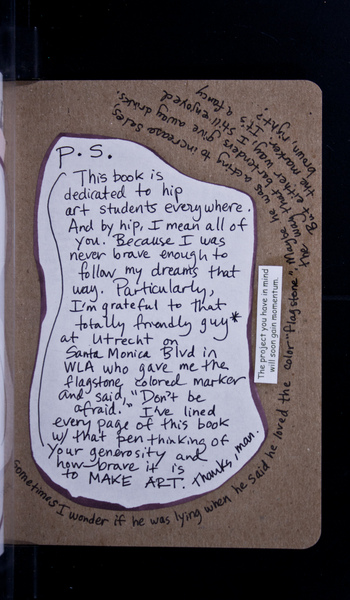 P.S.
This book is
dedicated to hip
art students everywhere.
And by hip, I mean all of
you. Because I was
never brave enough to
follow my dreams that
way. Particularly,
I'm grateful to that
totally friendly guy*
at Utrecht on
Santa Monica Blvd in
WLA who gave me the
flagstone colored marker
and said, "Don't be
afraid." I've lined
every page of this book
w/ that pen thinking of
your generosity and
how brave it is
to MAKE ART. Thanks, man.
The project you have in mind
will soon gain momentum.
Sometimes I wonder if he was lying when he said he loved the color "flagstone". Maybe he was acting to increase sales,
way that bartenders give away drinks.
But either way, I still enjoyed
the marker. It's a fancy
brown right?